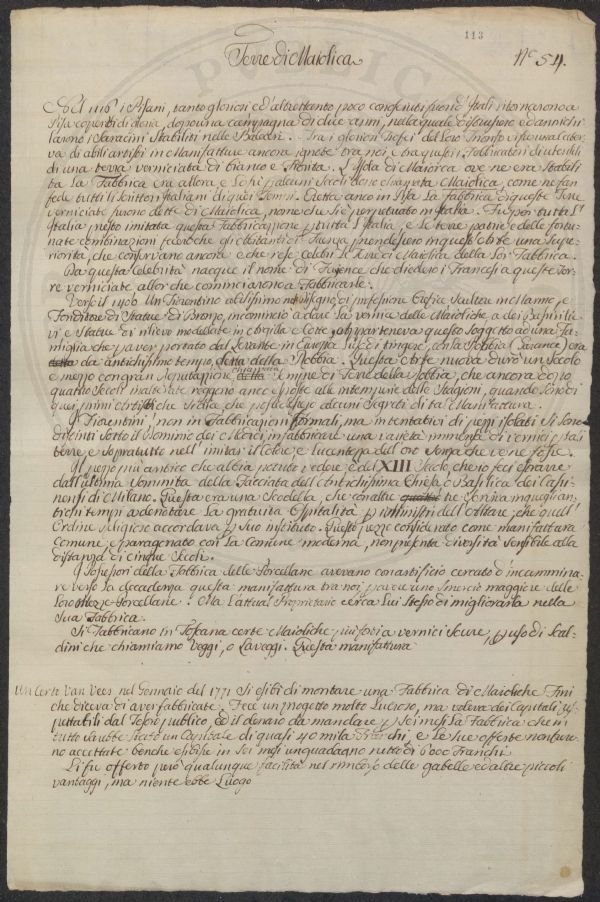 113
Terre di Maiolica
N.° 54.
Nel 1116 i Pisani, tanto gloriosi ed altrettanto poco conosciuti fuori d'Italia ritornarono a
Pisa coperti di gloria, dopo una campagna di dieci anni, nella quale distrussero ed annichi
larono i Saracini Stabiliti nelle Baleari. Tra i gloriosi Trofei del Loro Trionfo vi fu una cater
va di abili artisti in Manifatture ancora ignote tra noi, e tra questi, Fabbricatori di utensili
di una terra verniciata di bianco e fiorita. L'Isola di Maiorca ove ne era Stabili
ta La Fabbrica era allora, e Lo fu alcuni Secoli dopo chiamata Maiolica, come ne fan
fede tutti li Scrittori Italiani di quei Tempi. Eretta anco in Pisa La fabbrica di queste Terre
verniciate furono dette di Maiolica, nome che si è perpetuato in Italia. Fu per tutta L'
Italia presto imitata questa Fabbricazione per tutta L'Italia, e Le terre patrie e delle fortu-
nate combinazioni fecero che gli abitanti di Faenza prendessero in quest'arte una Supe-
riorità, che conservano ancora e che rese celebri Le Terre di Maiolica della Lor Fabbrica.
Da questa celebrità nacque il nome di Fayence che diedero i Francesi a queste Ter-
re verniciate allor che cominciarono a Fabbricarle.
Verso il 1400 Un Fiorentino abilissimo nel disegno di professione Orefice Scultore in Marmo, e
Fonditore di Statue di Bronzo, incominciò a dare La vernice delle Maioliche, a dei Bassirilie
vi e Statue di rilievo modellate in argilla e Cotte, apparteneva questo Soggetto ad una Fa-
miglia che per aver portato dal Levante in Toscana L'uso di tingere, con la Robbia (Garance) era
detta da antichissimo tempo, detta della Robbia. Questa arte nuova durò un Secolo
e mezzo con gran reputazione chiamata detta e empiè di Terre della Robbia, che ancora dopo
quattro Secoli inalterate reggono anco esposte alle intemperie delle Stagioni, quando Sono di
quei primi artisti che Sicilia che possedessero alcuni Segreti di tal Manifattura.
I Fiorentini, non in Fabbricazioni formali, ma in tentativi di pezzi isolati Si Sono
distinti Sotto il dominio dei Medici, in fabbricare una varietà immensa di vernici Su tali
terre, e Sopratutto nell'imitar il Colore e Lucentezza dell'oro Senza che ve ne fosse.
Il pezzo più antico che abbia potuto vedere è del XIII Secolo, che io feci estrarre
dall'ultima Sommità della Facciata dell'antichissima Chiesa, o Basilica dei Casi-
nensi di Milano. Questa era una Scodella, che con altre quattro tre Serviva in quegli an-
tichi tempi a denotare La gratuita Ospitalità per i ministri dell'Altare che quell'
Ordine Religioso accordava per Suo instituto. Questo pezzo considerato come manifattura
Comune, e paragonato con La Comune moderna, non presenta diversità Sensibile alla
distanza di cinque Secoli.
I Possessori della Fabbrica delle Porcellane avevano con artificio cercato d'incammina-
re verso La decadenza questa manifattura tra noi per aver uno Smercio maggiore delle
Loro Mezze Porcellane. Ma L'attual Proprietario cerca Lui Stesso di migliorarla nella
Sua Fabbrica.
Si Fabbricano in Toscana certe Maioliche più forti a vernici Scure, per uso di Scal-
dini che chiamiamo Veggi, o Laveggi. Questa manifattura
Un Certo Van Vees nel Gennaio del 1771 Si esibì di montare una Fabbrica di Maioliche Fini
che diceva di aver fabbricate. Fece un progetto molto Lucroso, ma voleva dei Capitali, im-
prestabili dal Tesoro publico, ed il denaro da mandare per Sei mesi La Fabbrica che in
tutto Sarebbe Stato un Capitale di quasi 40 mila Franchi, e Le Sue offerte non furo-
no accettate benche esibisse in Sei mesi un guadagno netto di 6000 Franchi.
Li fu offerto però qualunque facilità nel rimborso delle gabelle ed altri piccoli
vantaggi, ma niente ebbe Luogo